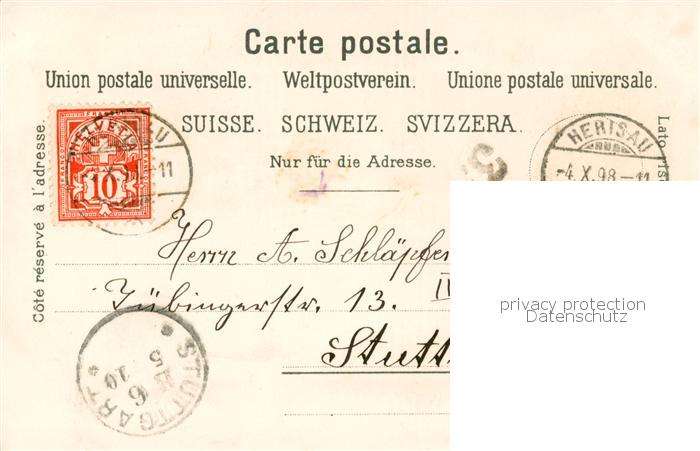 Carte postale.
Union postale universelle. Weltpostverein. Unione postale universale.
SUISSE. SCHWEIZ. SVIZZERA.
Nur für die Adresse.
Côté réservé à l'adresse.
HELVETIA
10
HERISAU
-4.X.98-11
Herrn A. Schläpfer
Tübingerstr. 13. IV
Stutt
STUTTGART
5
6
10
privacy protection
Datenschutz